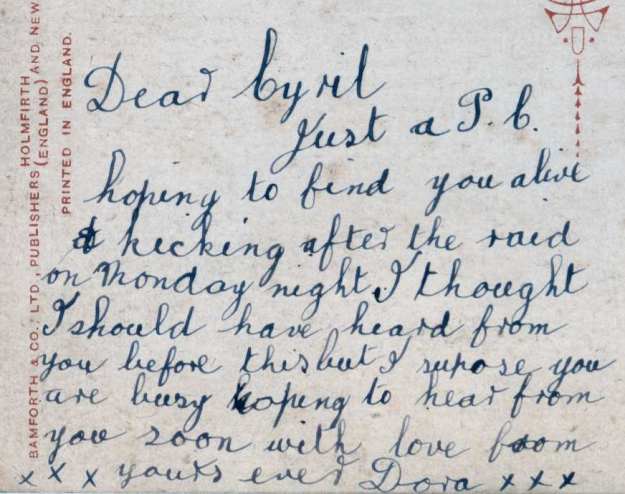 Dear Cyril
Just a P.C.
hoping to find you alive
& kicking after the raid
on Monday night. I thought
I should have heard from
you before this but I supose you
are busy hoping to hear from
you soon with love from
x x x yours ever Dora x x x
BAMFORTH & CO., LTD., PUBLISHERS HOLMFIRTH (ENGLAND) AND NEW
PRINTED IN ENGLAND.